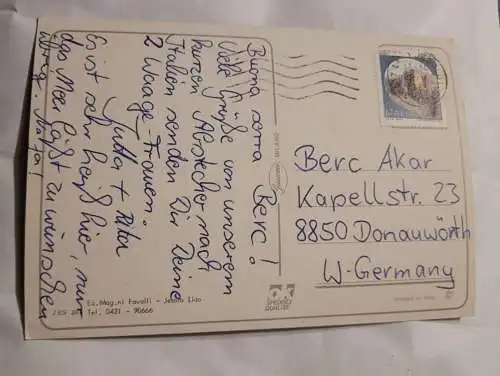 Buona sera Berc!
Viele Grüße von unserem
kurzen Abstecher nach
Italien senden Dir Deine
2 Waage-Frauen.
Jutta + Rita
Es ist sehr heiß hier, nur
das Meer läßt zu wünschen
übrig. Naja!
Berc Akar
Kapellstr. 23
8850 Donauwörth
W-Germany
Ed. Mag.ni Favelli - Jesolo Lido
Tel. 0421 - 90666